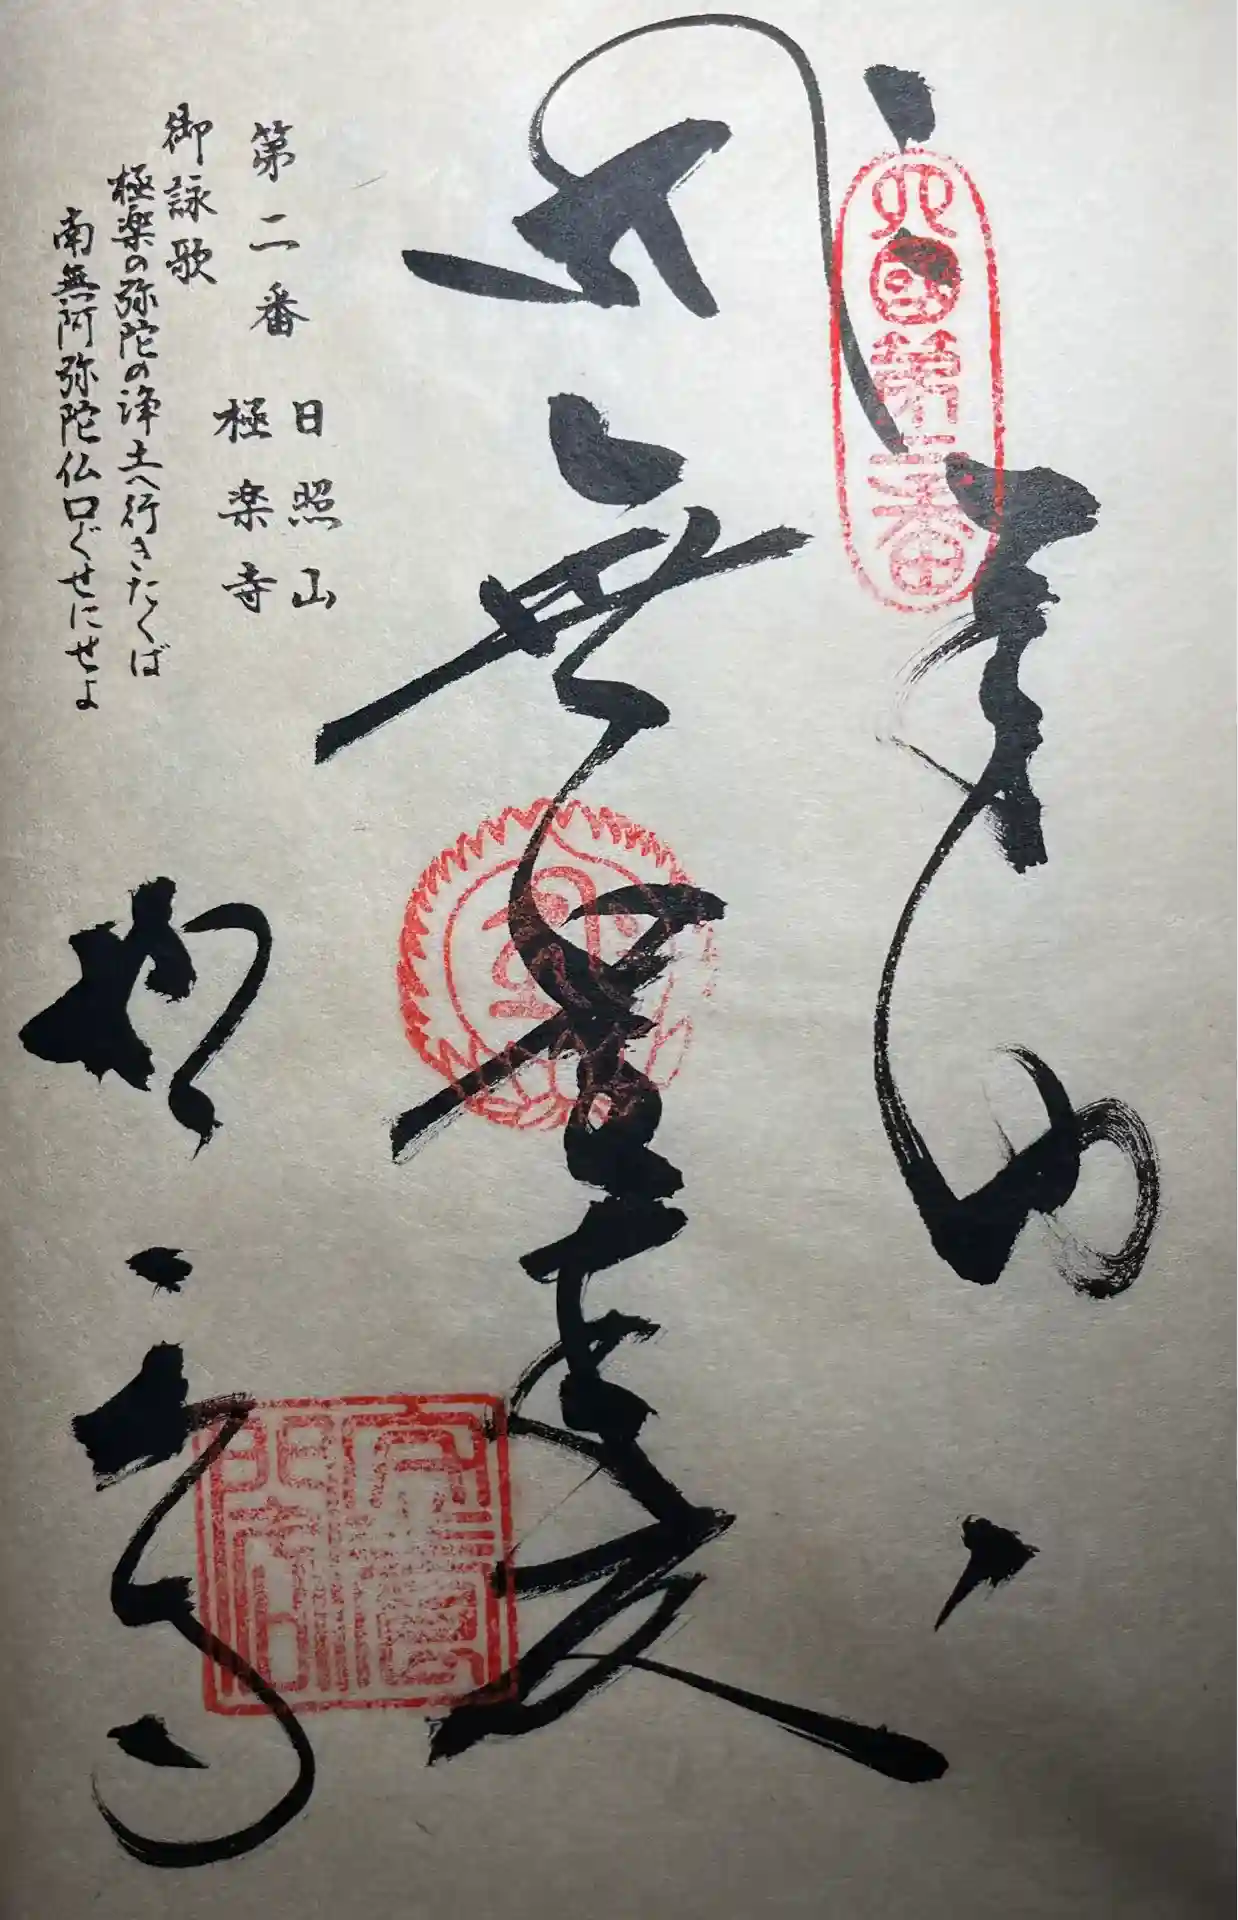 奉納
四国第二番
無量寿
第二番 日照山
極楽寺
御詠歌
極楽の弥陀の浄土へ行きたくば
南無阿弥陀仏口ぐせにせよ